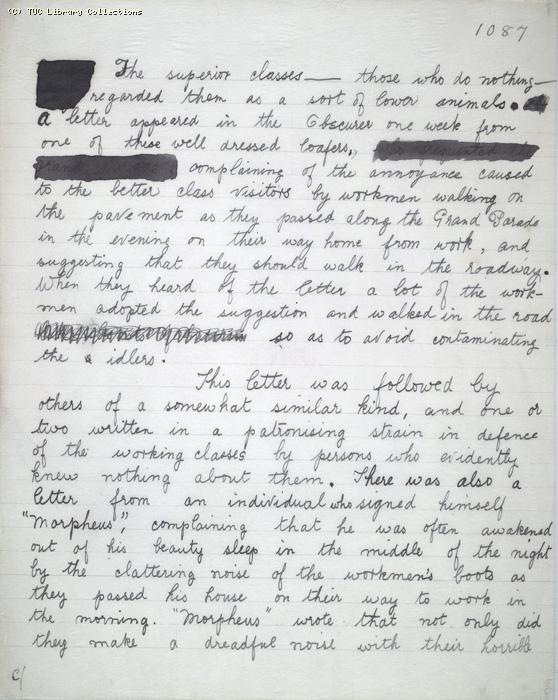 (C) TUC Library Collections
1087
The superior classes — those who do nothing —
regarded them as a sort of lower animals.
A letter appeared in the Obscurer one week from
one of these well dressed loafers,
complaining of the annoyance caused
to the better class visitors by workmen walking on
the pavement as they passed along the Grand Parade
in the evening on their way home from work, and
suggesting that they should walk in the roadway.
When they heard of the letter a lot of the work-
men adopted the suggestion and walked in the road
so as to avoid contaminating
the idlers.
This letter was followed by
others of a somewhat similar kind, and one or
two written in a patronising strain in defence
of the working classes by persons who evidently
knew nothing about them. There was also a
letter from an individual who signed himself
"Morpheus", complaining that he was often awakened
out of his beauty sleep in the middle of the night
by the clattering noise of the workmen's boots as
they passed his house on their way to work in
the morning. "Morpheus" wrote that not only did
they make a dreadful noise with their horrible
c/